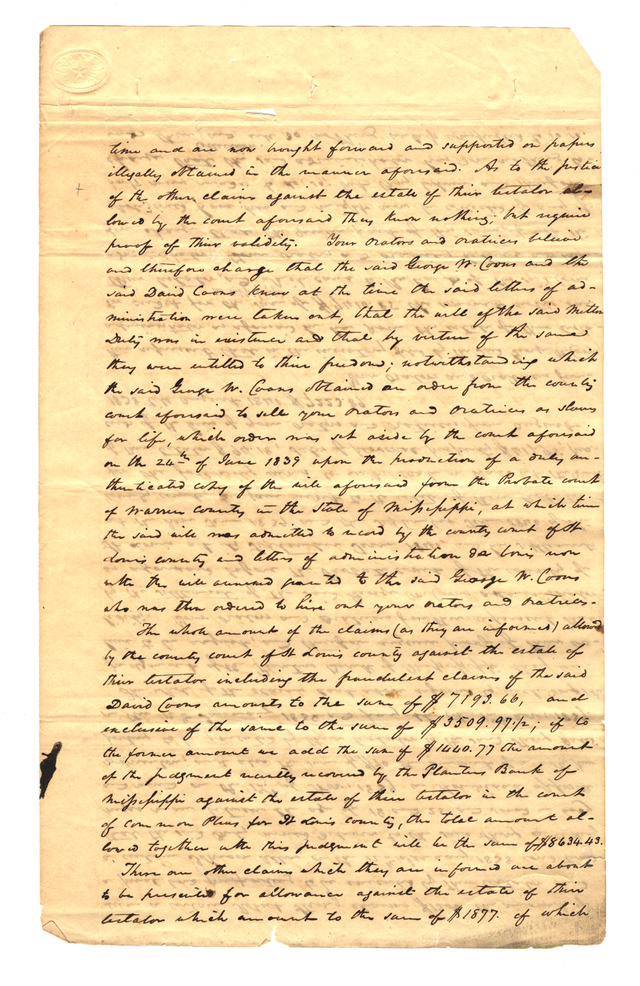 time and are now brought forward and supported on papers
illegally obtained in the manner aforesaid. As to the justice
of the other claims against the estate of their testator al-
lowed by the court aforesaid they know nothing, but require
proof of their validity. Your orators and oratrices believe
and therefore charge that the said George W. Coons and the
said David Coons knew at the time the said letters of ad-
ministration were taken out, that the will of the said Milton
Duty was in existence and that by virtue of the same
they were entitled to their freedom; notwithstanding which
the said George W. Coons obtained an order from the county
court aforesaid to sell your orators and oratrices as slaves
for life, which order was set aside by the court aforesaid
on the 24th of June 1839 upon the production of a duly au-
thenticated copy of the will aforesaid from the Probate court
of Warren county in the State of Mississippi, at which time
the said will was admitted to record by the county court of St
Louis county and letters of administration de bonis non
with the will annexed granted to the said George W. Coons
who was then ordered to hire out your orators and oratrices-
The whole amount of the claims (as they are informed) allowed
by the county court of St Louis county against the estate of
their testator including the fraudulent claims of the said
David Coons amounts to the sum of $7193.66, and
exclusive of the same to the sum of $3509.97 1/2; if to
the former amount we add the sum of $1440.77 the amount
of the judgment recently recovered by the Planters Bank of
Mississippi against the estate of their testator in the court
of common Pleas for St Louis county, the total amount al-
lowed together with this judgment will be the sum of $8634.43.
There are other claims which they are informed are about
to be presented for allowance against the estate of their
testator which amount to the sum of $1877. of which